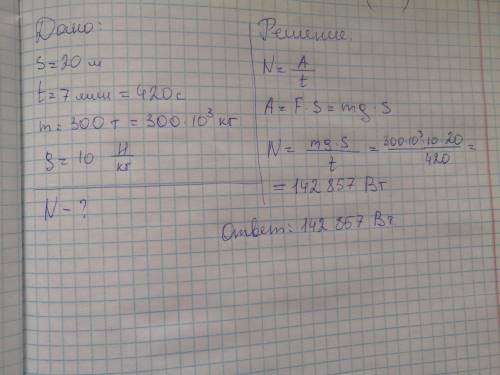 Дано:
S = 20 м
t = 7 мин = 420 с
m = 300 т = 300·10³ кг
g = 10 Н/кг
N - ?
Решение:
N = A/t
A = F·S = mg·S
N = mg·S/t = 300·10³·10·20/420 =
= 142 857 Вт
Ответ: 142 857 Вт